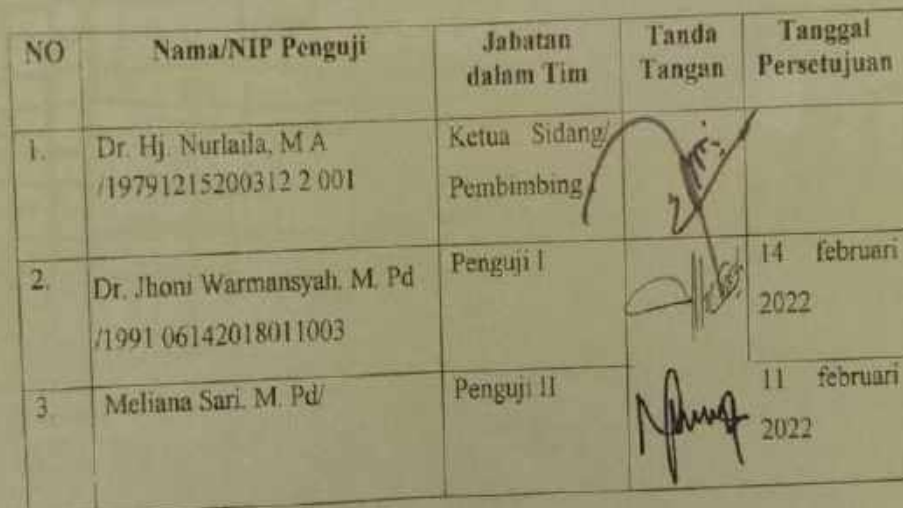 NO Nama/NIP Penguji Jabatan dalam Tim Tanda Tangan Tanggal Persetujuan
1. Dr. Hj. Nurlaila, M A
/19791215200312 2 001
Ketua Sidang/
Pembimbing
2. Dr. Jhoni Warmansyah. M. Pd
/1991 06142018011003
Penguji I
14 februari
2022
3. Meliana Sari. M. Pd/
Penguji II
11 februari
2022